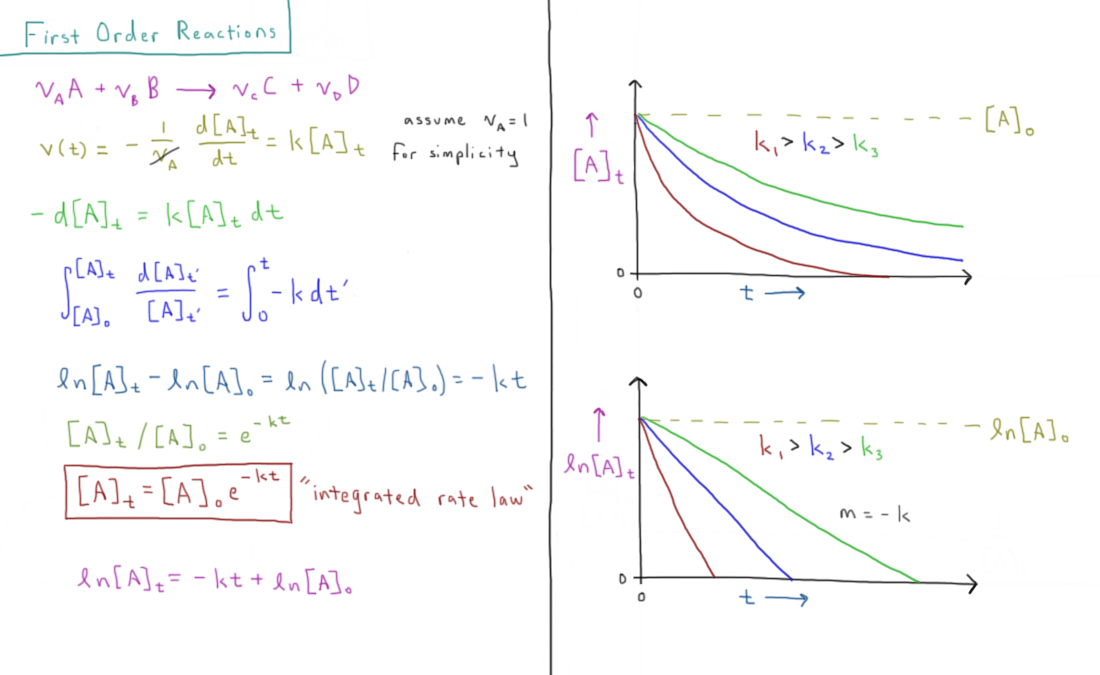 First Order Reactions
ν_A A + ν_B B → ν_C C + ν_D D
v(t) = - 1/ν_A d[A]_t/dt = k[A]_t
assume ν_A = 1
for simplicity
- d[A]_t = k[A]_t dt
∫_[A]₀^[A]_t d[A]_t'/[A]_t' = ∫_0^t - k dt'
ln[A]_t - ln[A]₀ = ln([A]_t/[A]₀) = -kt
[A]_t / [A]₀ = e^-kt
[A]_t = [A]₀ e^-kt "integrated rate law"
ln[A]_t = - kt + ln[A]₀
[A]₀
k₁ > k₂ > k₃
↑
[A]_t
0
0
t →
ln[A]₀
k₁ > k₂ > k₃
↑
ln[A]_t
m = - k
0
0
t →